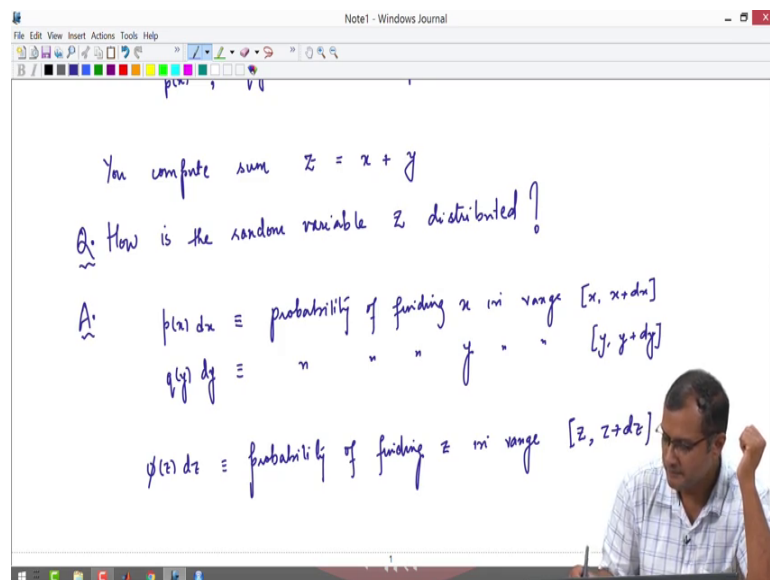 Note1 - Windows Journal
File Edit View Insert Actions Tools Help
p(x) ,
You compute sum z = x + y
Q. How is the random variable z distributed?
A. p(x) dx ≡ probability of finding x in range [x, x+dx]
q(y) dy ≡ " " " y " " [y, y+dy]
φ(z) dz ≡ probability of finding z in range [z, z+dz]
1